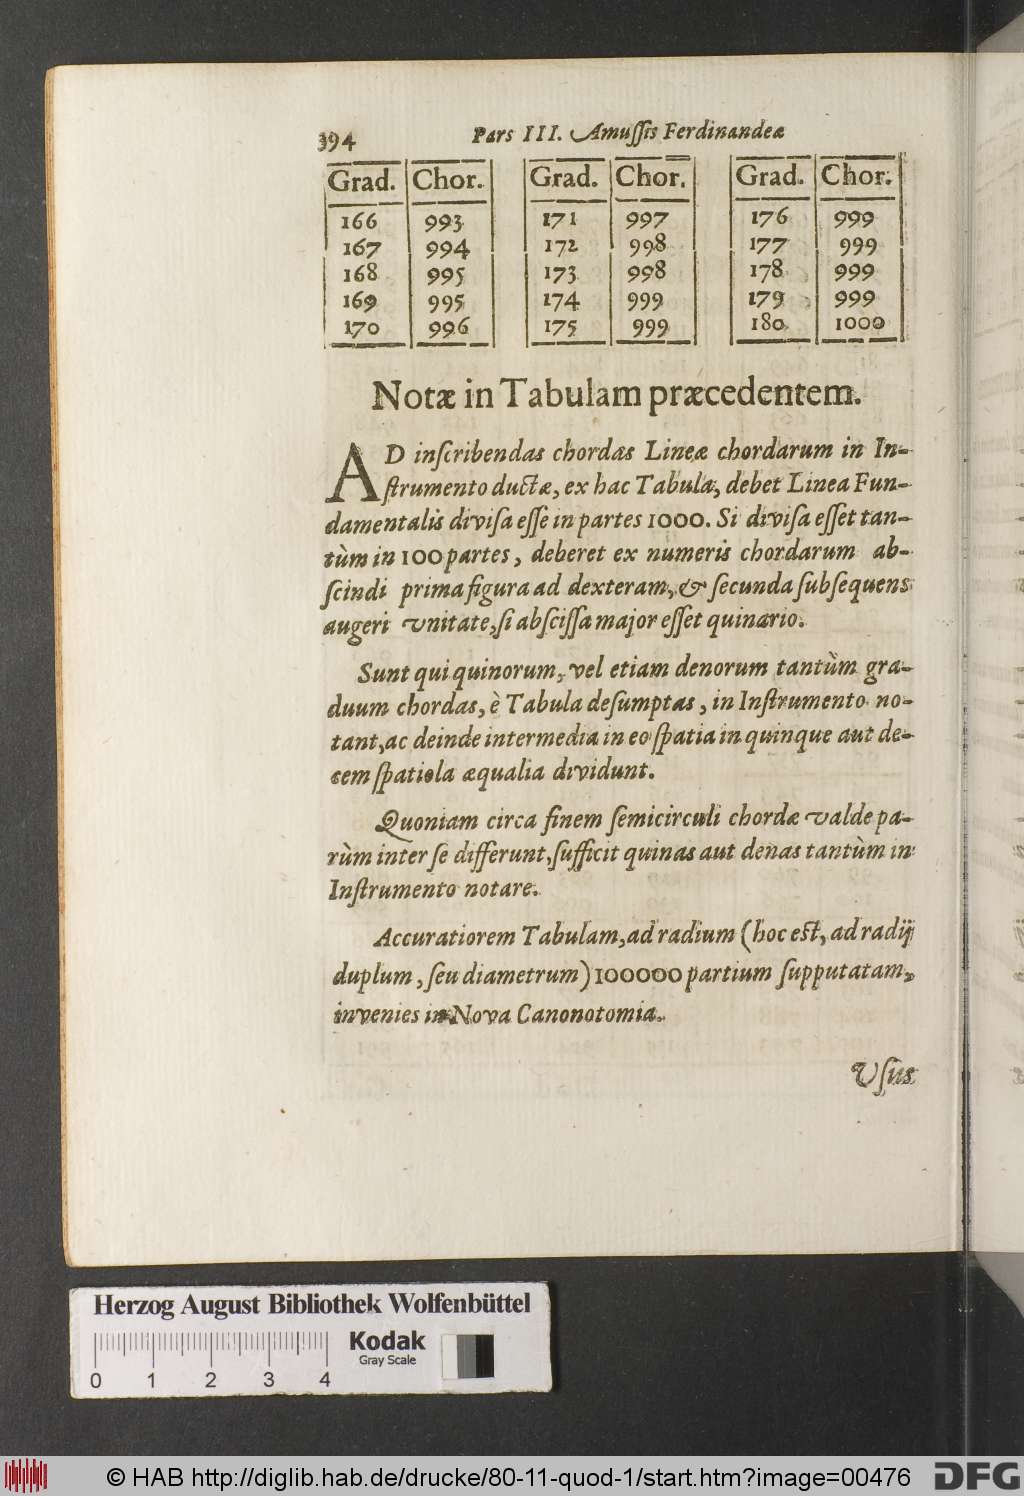 394 Pars III. Amuſſis Ferdinandeæ
Grad. Chor. Grad. Chor. Grad. Chor.
166 993 171 997 176 999
167 994 172 998 177 999
168 995 173 998 178 999
169 995 174 999 179 999
170 996 175 999 180 1000
Notæ in Tabulam præcedentem.
AD inſcribendas chordas Lineæ chordarum in In-
ſtrumento ductæ, ex hac Tabula, debet Linea Fun-
damentalis diviſa eſſe in partes 1000. Si diviſa eſſet tan-
tùm in 100 partes, deberet ex numeris chordarum ab-
ſcindi prima figura ad dexteram, & ſecunda ſubſequens
augeri vnitate, ſi abſciſſa major eſſet quinario.
Sunt qui quinorum, vel etiam denorum tantùm gra-
duum chordas, è Tabula deſumptas, in Inſtrumento no-
tant, ac deinde intermedia in eo ſpatia in quinque aut de-
cem ſpatiola æqualia dividunt.
Quoniam circa finem ſemicirculi chordæ valde pa-
rùm inter ſe differunt, ſufficit quinas aut denas tantùm in
Inſtrumento notare.
Accuratiorem Tabulam, ad radium (hoc eſt, ad radij
duplum, ſeu diametrum) 100000 partium ſupputatam,
invenies in Nova Canonotomia.
Vſus
Herzog August Bibliothek Wolfenbüttel
Kodak
Gray Scale
0 1 2 3 4
© HAB http://diglib.hab.de/drucke/80-11-quod-1/start.htm?image=00476 DFG